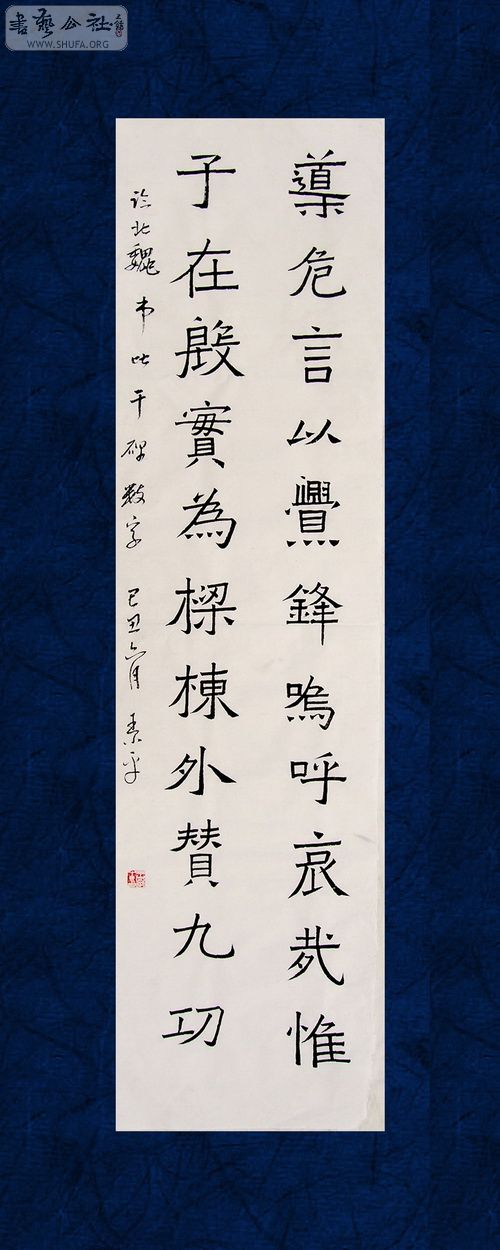 書藝公社
WWW.SHUFA.ORG
導危言以釁鋒嗚呼哀哉惟
子在殷實為樑棟外贊九功
临北魏吊比干碑数字 己丑六月